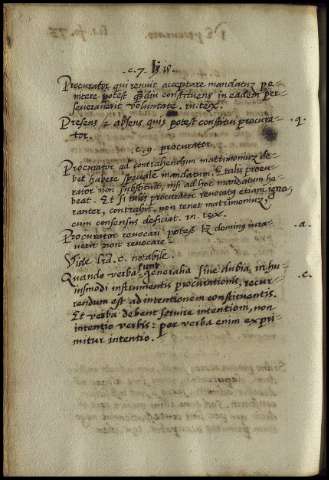 .c.7. li. 18.
Procurator qui renuit acceptare mandatum pe-
tere potest constituens in eadem per-
severaverit voluntate. in tex.
Presens & absens quis potest constitui procura-
tor. .q.
.c.9 procurator
Procurator ad contrahendum matrimonium de-
bet habere speciale mandatum. Et talis procu-
rator non substituit, nisi ad hoc mandatum ha-
beat. Et si talis procurator revocatus etiam igno-
ranter, contrahit, non tenet matrimonium,
cum consensus deficiat. in tex.
Procurator revocari potest lz dominus iura-
verit non revocare. .a.
Vide bra. c. notabile.
Quando verba sunt generalia sive dubia, in hu-
iusmodi instrumentis procurationis, recur- .c.
rendum est ad intentionem constituentis.
Et verba debent servire intentioni, non
intentio verbis: per verba enim expri-
mitur intentio.